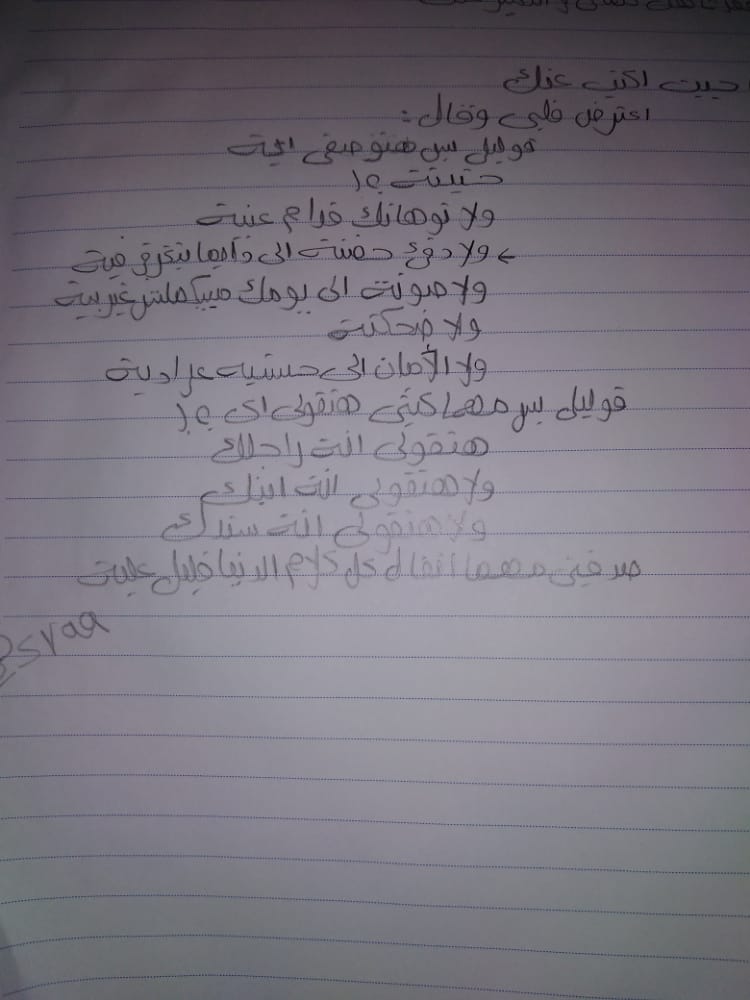 جيت اكتب عنك
اعترض قلبي وقال :
قوليل بس هتوصفى اية
حنيتة ولا
ولا توهانك قدام عنية
ولا دفئ حضنة الى دايما بتغرقى فية
ولا صوتة الى يومك مبيكملش غير بية
ولا ضحكتة
ولا الأمان الى حستيه على ادية
قوليل بس مهما كتبتى هتقولى اى ولا
هتقولى انت راجلك
ولا هتقولى انت ابنك
ولا هتقولى انت سندك
صدقينى مهما اتقال كل كلام الدنيا قليل علية
Esraa